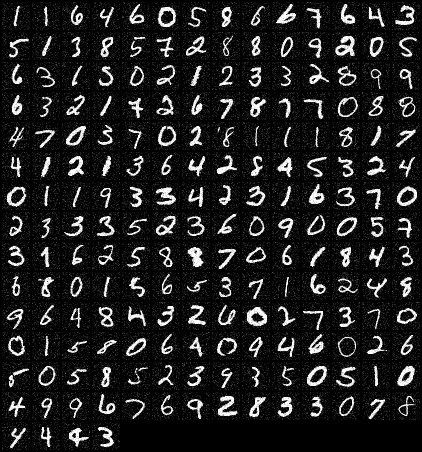 1 1 6 4 6 0 5 8 6 6 7 6 4 3
5 1 3 8 5 7 2 8 8 0 9 2 0 5
6 3 1 5 0 2 1 2 3 3 2 8 9 9
6 3 2 1 7 2 6 7 8 7 7 0 8 8
4 7 0 3 7 0 2 8 1 1 1 8 1 7
4 1 2 1 3 6 4 2 8 4 5 3 2 4
0 1 1 9 3 3 4 2 3 1 6 3 7 0
2 3 3 3 5 2 3 6 0 9 0 0 5 7
3 1 6 2 5 8 8 7 0 6 1 8 4 3
6 8 0 1 5 6 5 3 7 1 6 2 4 8
9 6 4 8 4 3 2 6 0 2 7 3 7 0
0 1 5 8 0 6 9 0 9 4 6 0 2 6
5 0 5 8 5 2 3 9 3 5 0 5 1 0
4 9 9 6 7 6 9 2 8 3 3 0 7 8
4 4 4 3